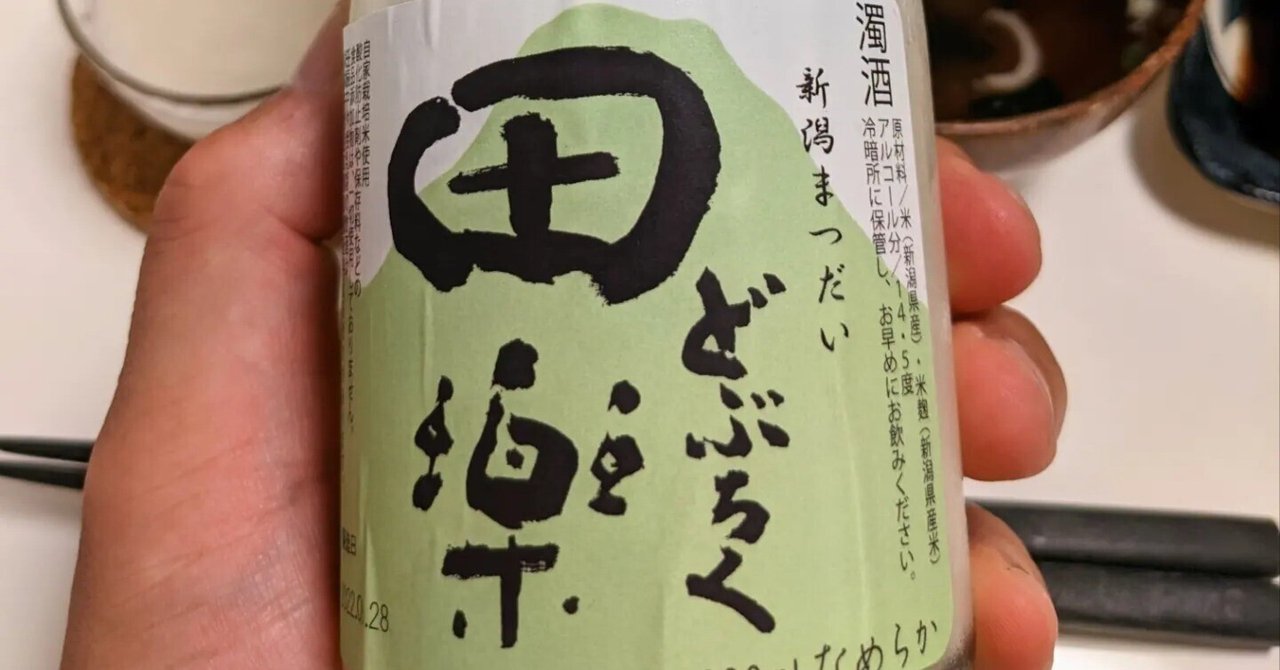 濁酒
原材料/米(新潟県産)・米麹(新潟県産米)
アルコール分/14・5度
冷暗所に保管し、お早めにお飲みください。
新潟まつだい
どぶちく
田樂
自家栽培米使用
酸化防止剤や保存料などの
なめらか